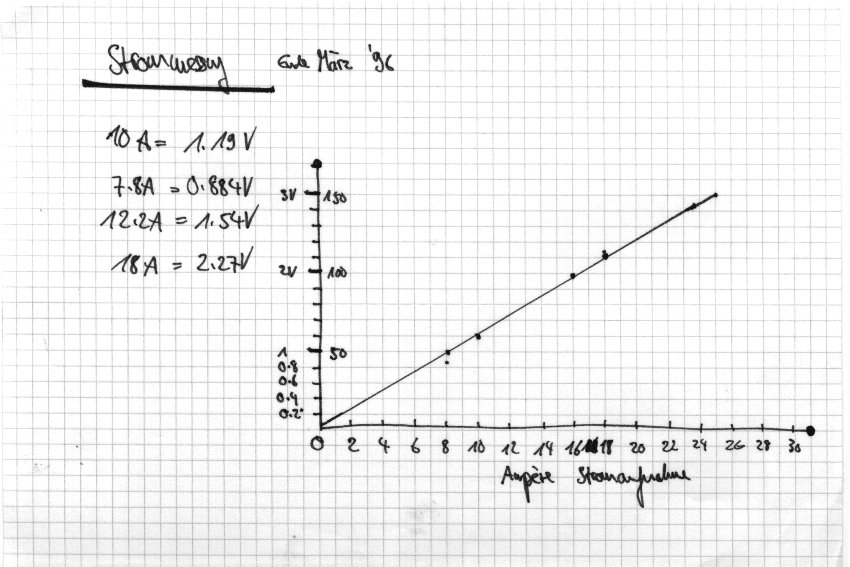 Strommessung Ende März '96
10 A = 1.19 V
7.8A = 0.884V
12.2A = 1.54V
18 A = 2.27V
3V 150
2V 100
1 50
0.8
0.6
0.4
0.2
0 2 4 6 8 10 12 14 16 18 20 22 24 26 28 30
Ampère Stromaufnahme